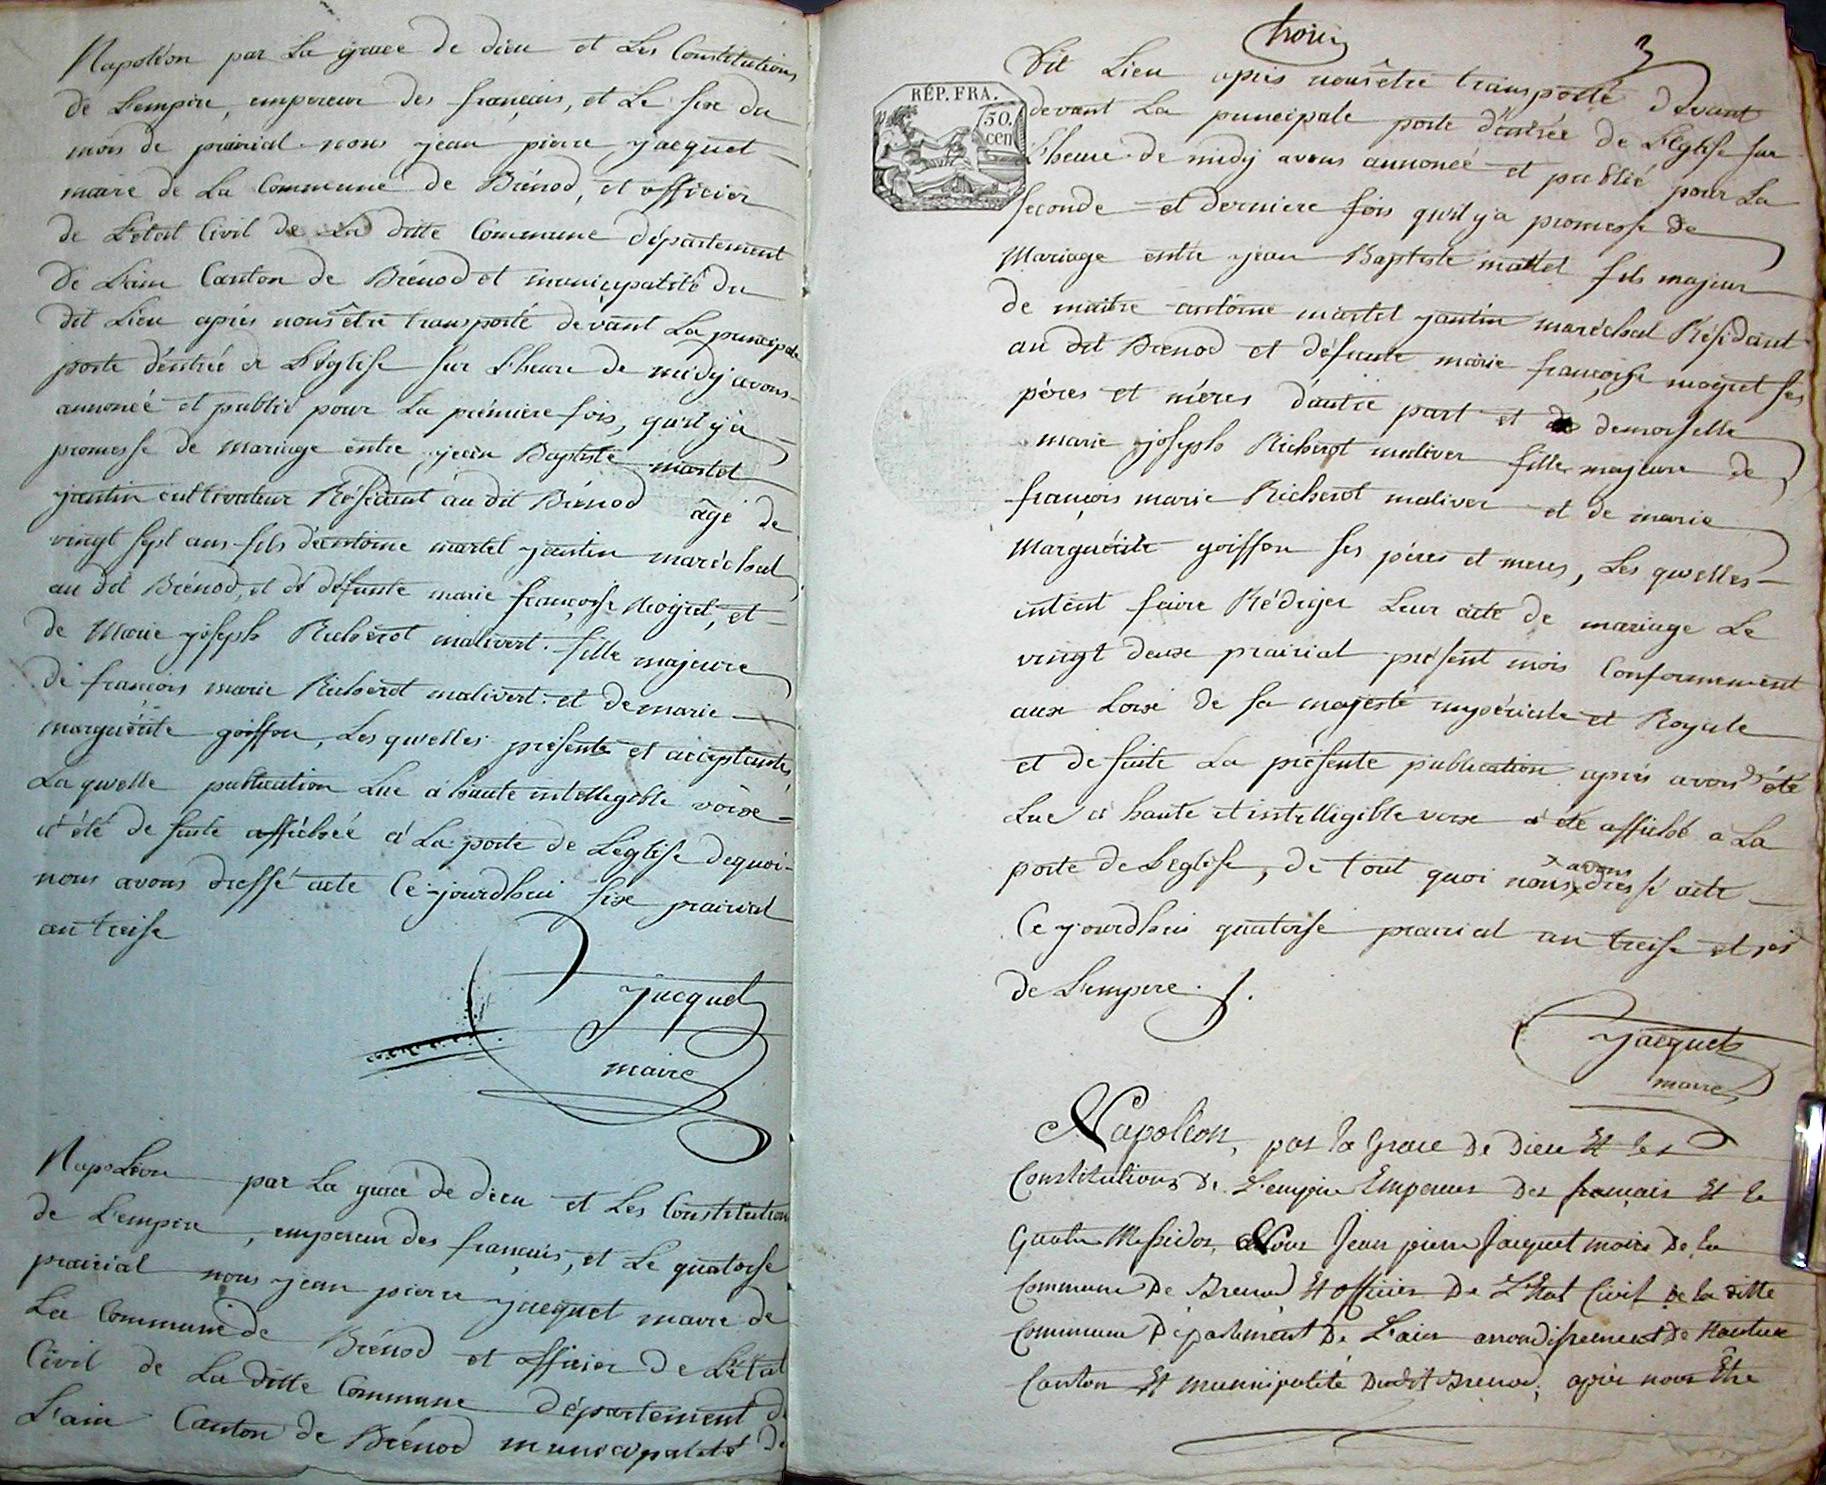 Napoléon par La grace de dieu et Les Constitutions
de L'empire, empereur des français, et Le six du
mois de prairial nous jean pierre jacquet
maire de La Commune de Brénod, et officier
de L'etat Civil de La ditte Commune département
de L'ain Canton de Brénod et municipalité du
dit Lieu après nous être transporté devant La principale
porte d'entrée de L'église sur L'heure de midy avons
annoncé et publié pour La première fois, qu'il y a
promesse de mariage entre jean Baptiste martel
jantin cultivateur Résidant au dit Brénod âgé de
vingt sept ans fils d'antoine martel jantin maréchal
au dit Brénod, et de défunte marie françoise moyret, et
de Marie joseph Richerot malivert fille majeure
de françois marie Richerot malivert et de marie
marguérite goiffon, Les qwelles présente et acceptantes
La qwelle publication Lue à haute intelligible voixe
a été de suite affichée à La porte de L'eglise de quoi
nous avons dressé acte Ce jourdhui six prairial
an treise
jacquet
maire
Napoléon par La grace de dieu et Les Constitution
de L'empire, empereur des français, et Le quatorse
prairial nous jean pierre jacquet maire de
La Commune de Brénod et officier de L'état
Civil de La ditte Commune département de
L'ain Canton de Brénod municipalité du
trois
3
RÉP. FRA.
50.
cen
dit Lieu après nous être transporté devant
devant La principale porte d'entrée de L'Eglise sur
L'heure de midy avons annoncé et publié pour La
seconde et derniere fois qu'il y a promesse de
Mariage entre jean Baptiste martel fils majeur
de maitre antoine martel jantin maréchal Résidant
au dit Brénod et défunte marie françoise moyret ses
péres et méres d'autre part et de demoiselle
marie joseph Richerot maliver fille majeure de
françois marie Richerot maliver et de marie
Marguérite goiffon ses péres et meres, Les qwelles
intent faire Rédiger Leur acte de mariage Le
vingt deuxe prairial présent mois Conformement
aux Loix de sa majesté impériale et Royale
et de suite La présente publication après avoir été
Lue à haute et intelligible voix a été affiché a La
porte de L'eglise, de tout quoi nous avons dressé acte
Ce jourdhui quatorse prairial an treise et 1er
de L'empire
jacquet
maire
Napoléon, par la Grace De Dieu Et les
Constitutions De L'empire Empereur Des français Et le
Quatre Messidor, Nous Jean pierre Jacquet maire De la
Commune De Brenod Et officier De L'Etat Civil de la ditte
Commune Département De L'ain arrondissement De Nantua
Canton Et municipalité Dudit Brenod, après nous Etre